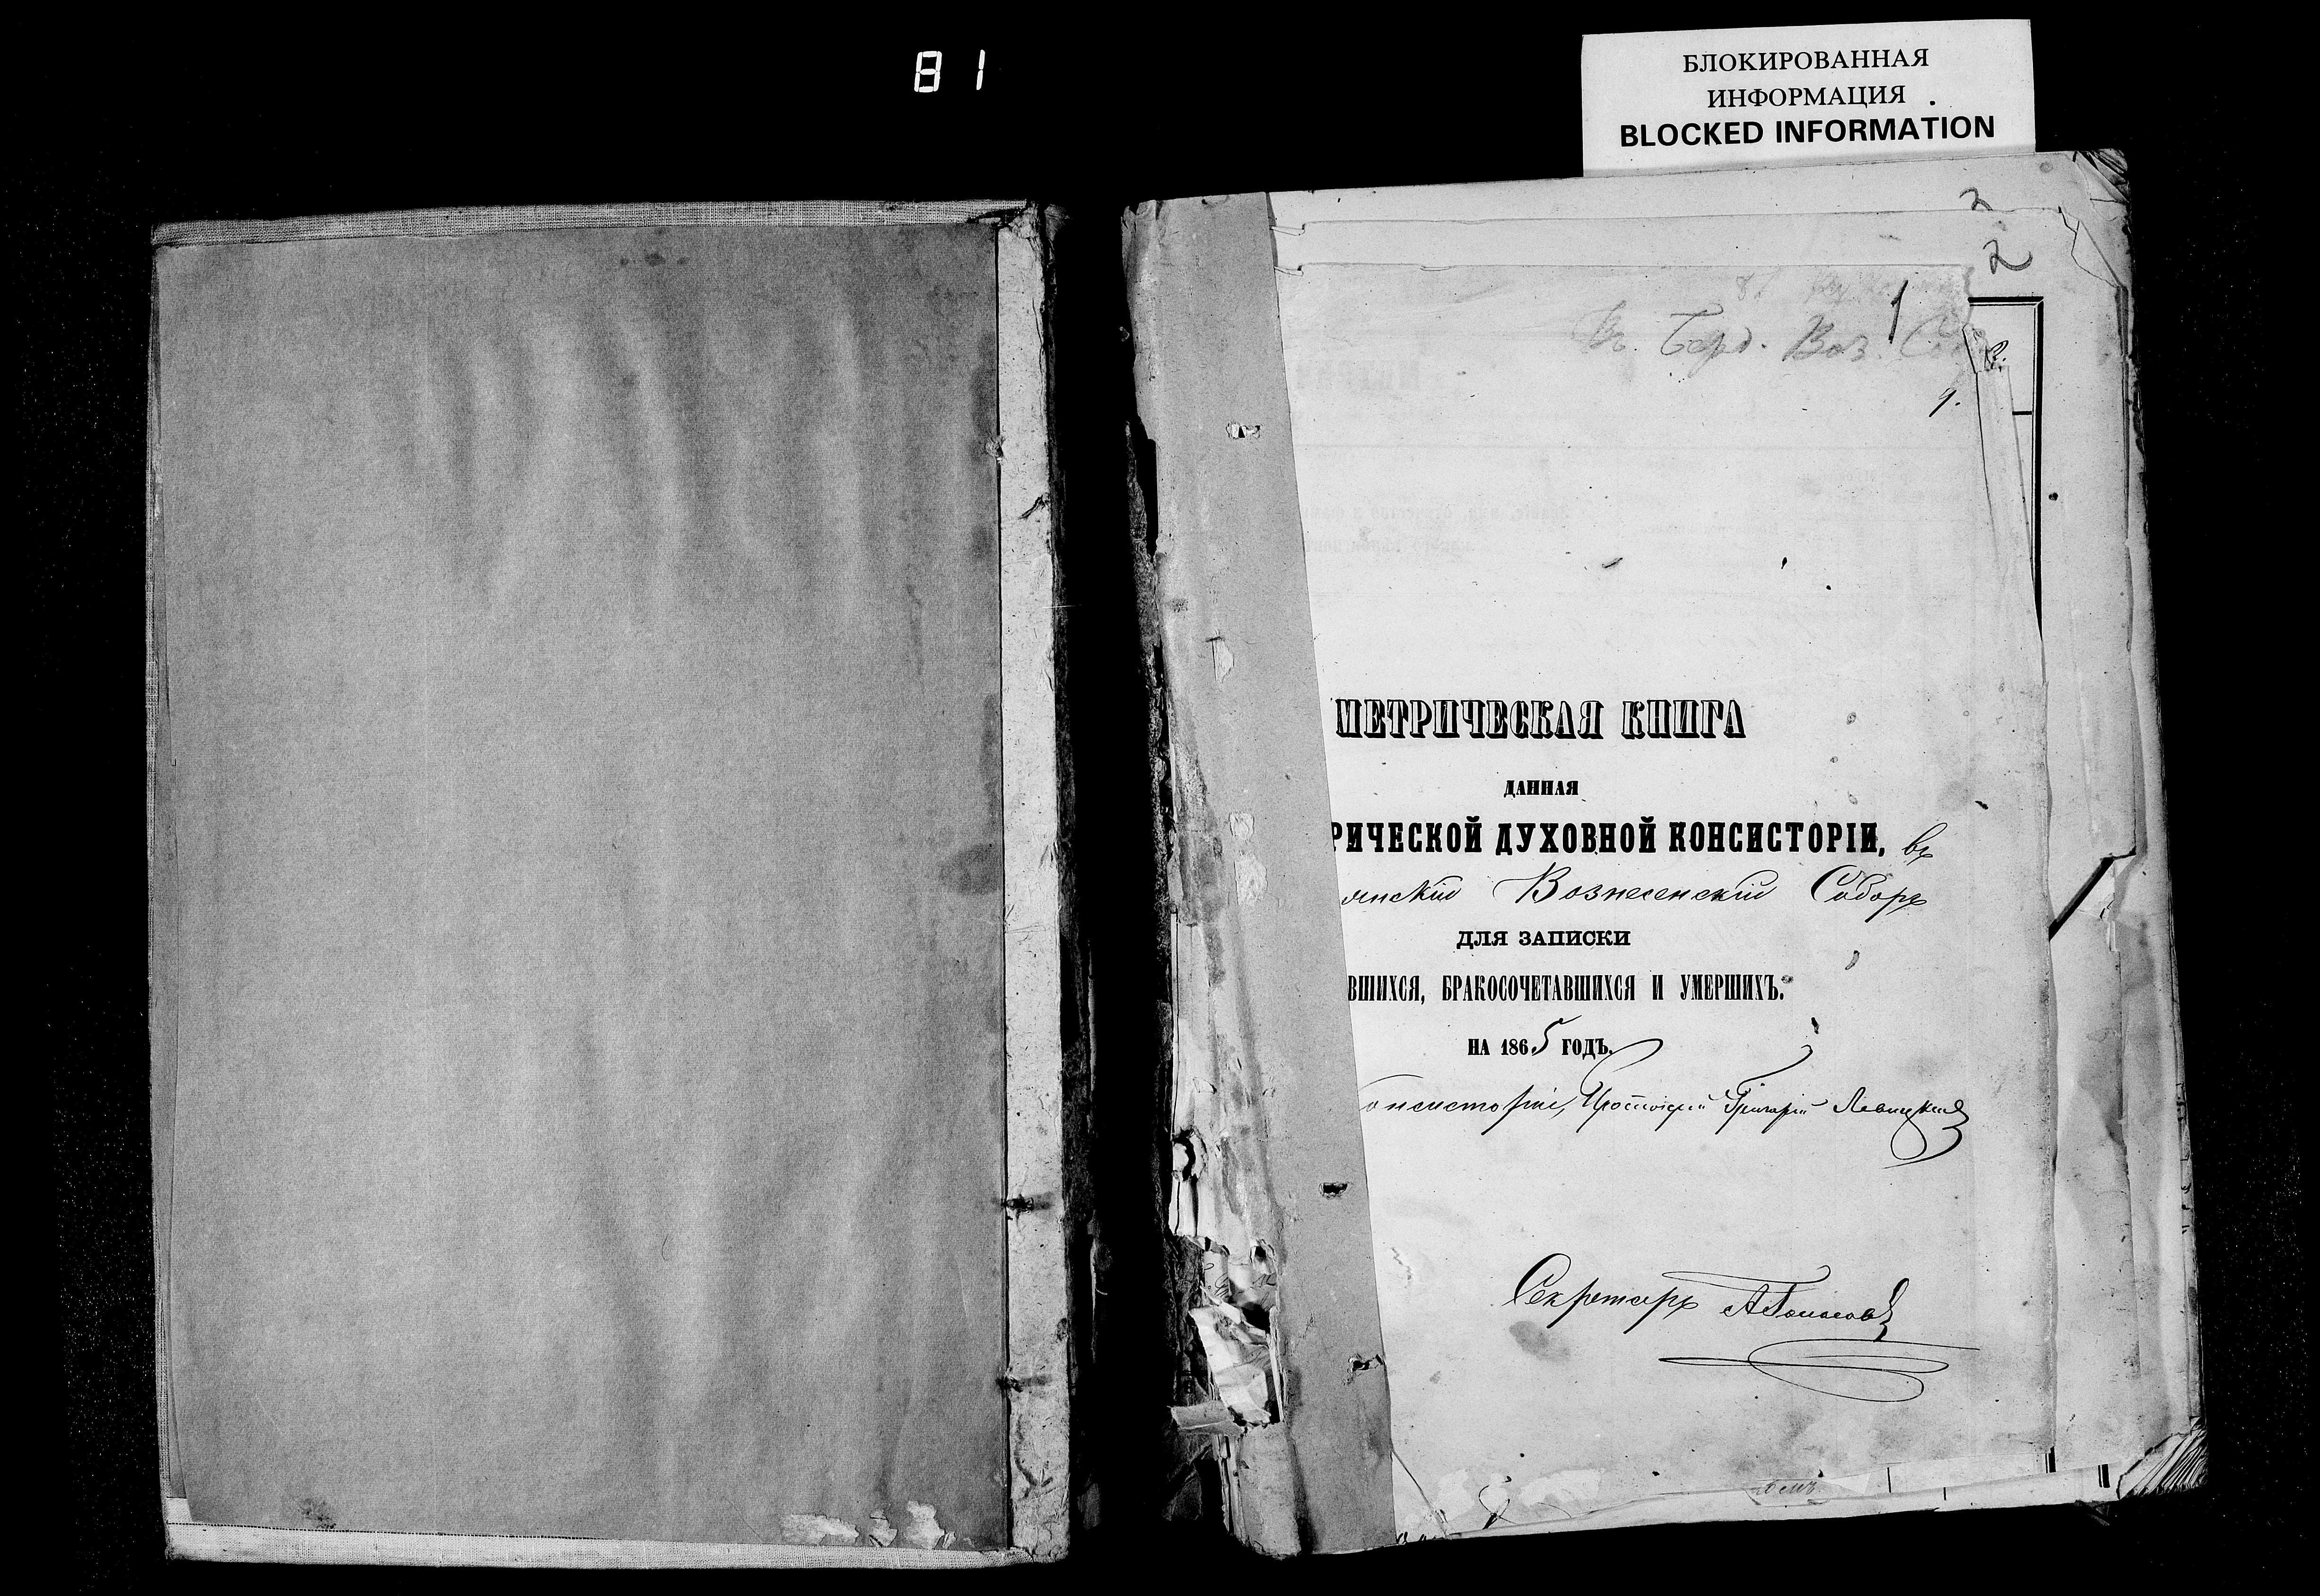 81
БЛОКИРОВАННАЯ
ИНФОРМАЦИЯ
BLOCKED INFORMATION
3
2
1
Въ Берд. Воз.
МЕТРИЧЕСКАЯ КНИГА
ДАННАЯ
РИЧЕСКОЙ ДУХОВНОЙ КОНСИСТОРІИ, въ
янскій Вознесенскій Соборъ
ДЛЯ ЗАПИСКИ
ВШИХСЯ, БРАКОСОЧЕТАВШИХСЯ И УМЕРШИХЪ.
НА 1865 ГОДЪ.
онсисторіи, Протоіерей Григорій Левицкій
Секретарь